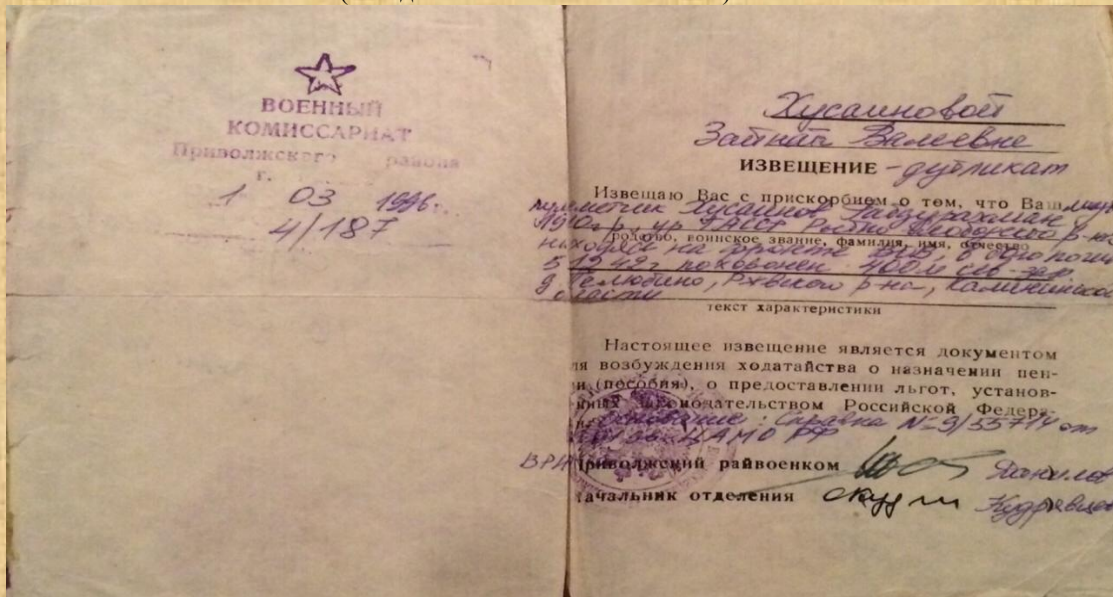 ВОЕННЫЙ
КОМИССАРИАТ
Приволжского района
г.
1 03 1996г.
4/187
Хусаиновой
Валеевне
ИЗВЕЩЕНИЕ - дубликат
Извещаю Вас с прискорбием о том, что Ваш муж
Хусаинов Габдурахман
1910 г.р., ур. ТАССР р-на
родство, воинское звание, фамилия, имя, отчество
находясь на фронте ВОВ, в бою погиб
1942г похоронен 400 м сев-зап.
д. Ржевского р-на, Калининской
области
текст характеристики
Настоящее извещение является документом
ля возбуждения ходатайства о назначении пен-
и (пособия), о предоставлении льгот, установ-
законодательством Российской Федера-
Основание: Справка № 9/55714 от
ЦАМО РФ
ВРИО Приволжский райвоенком Данилов
ачальник отделения Кудрявцев